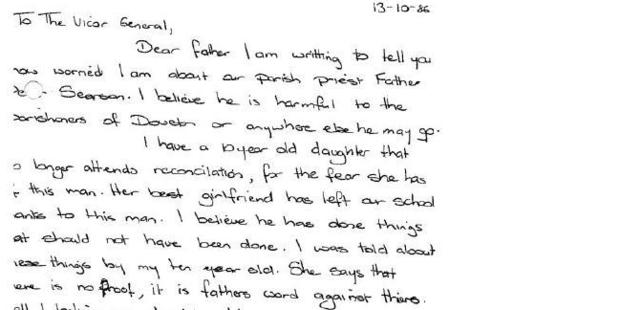 13-10-86
To The Vicar General,
Dear father I am writting to tell you
how worried I am about our parish priest Father
Searson. I believe he is harmful to the
parishoners of Doveton or anywhere else he may go.
I have a 10 year old daughter that
o longer attends reconcilation, for the fear she has
this man. Her best girlfriend has left our school
anks to this man. I believe he has done things
at should not have been done. I was told about
ese things by my ten year old. She says that
ere is no proof, it is fathers word against theirs.